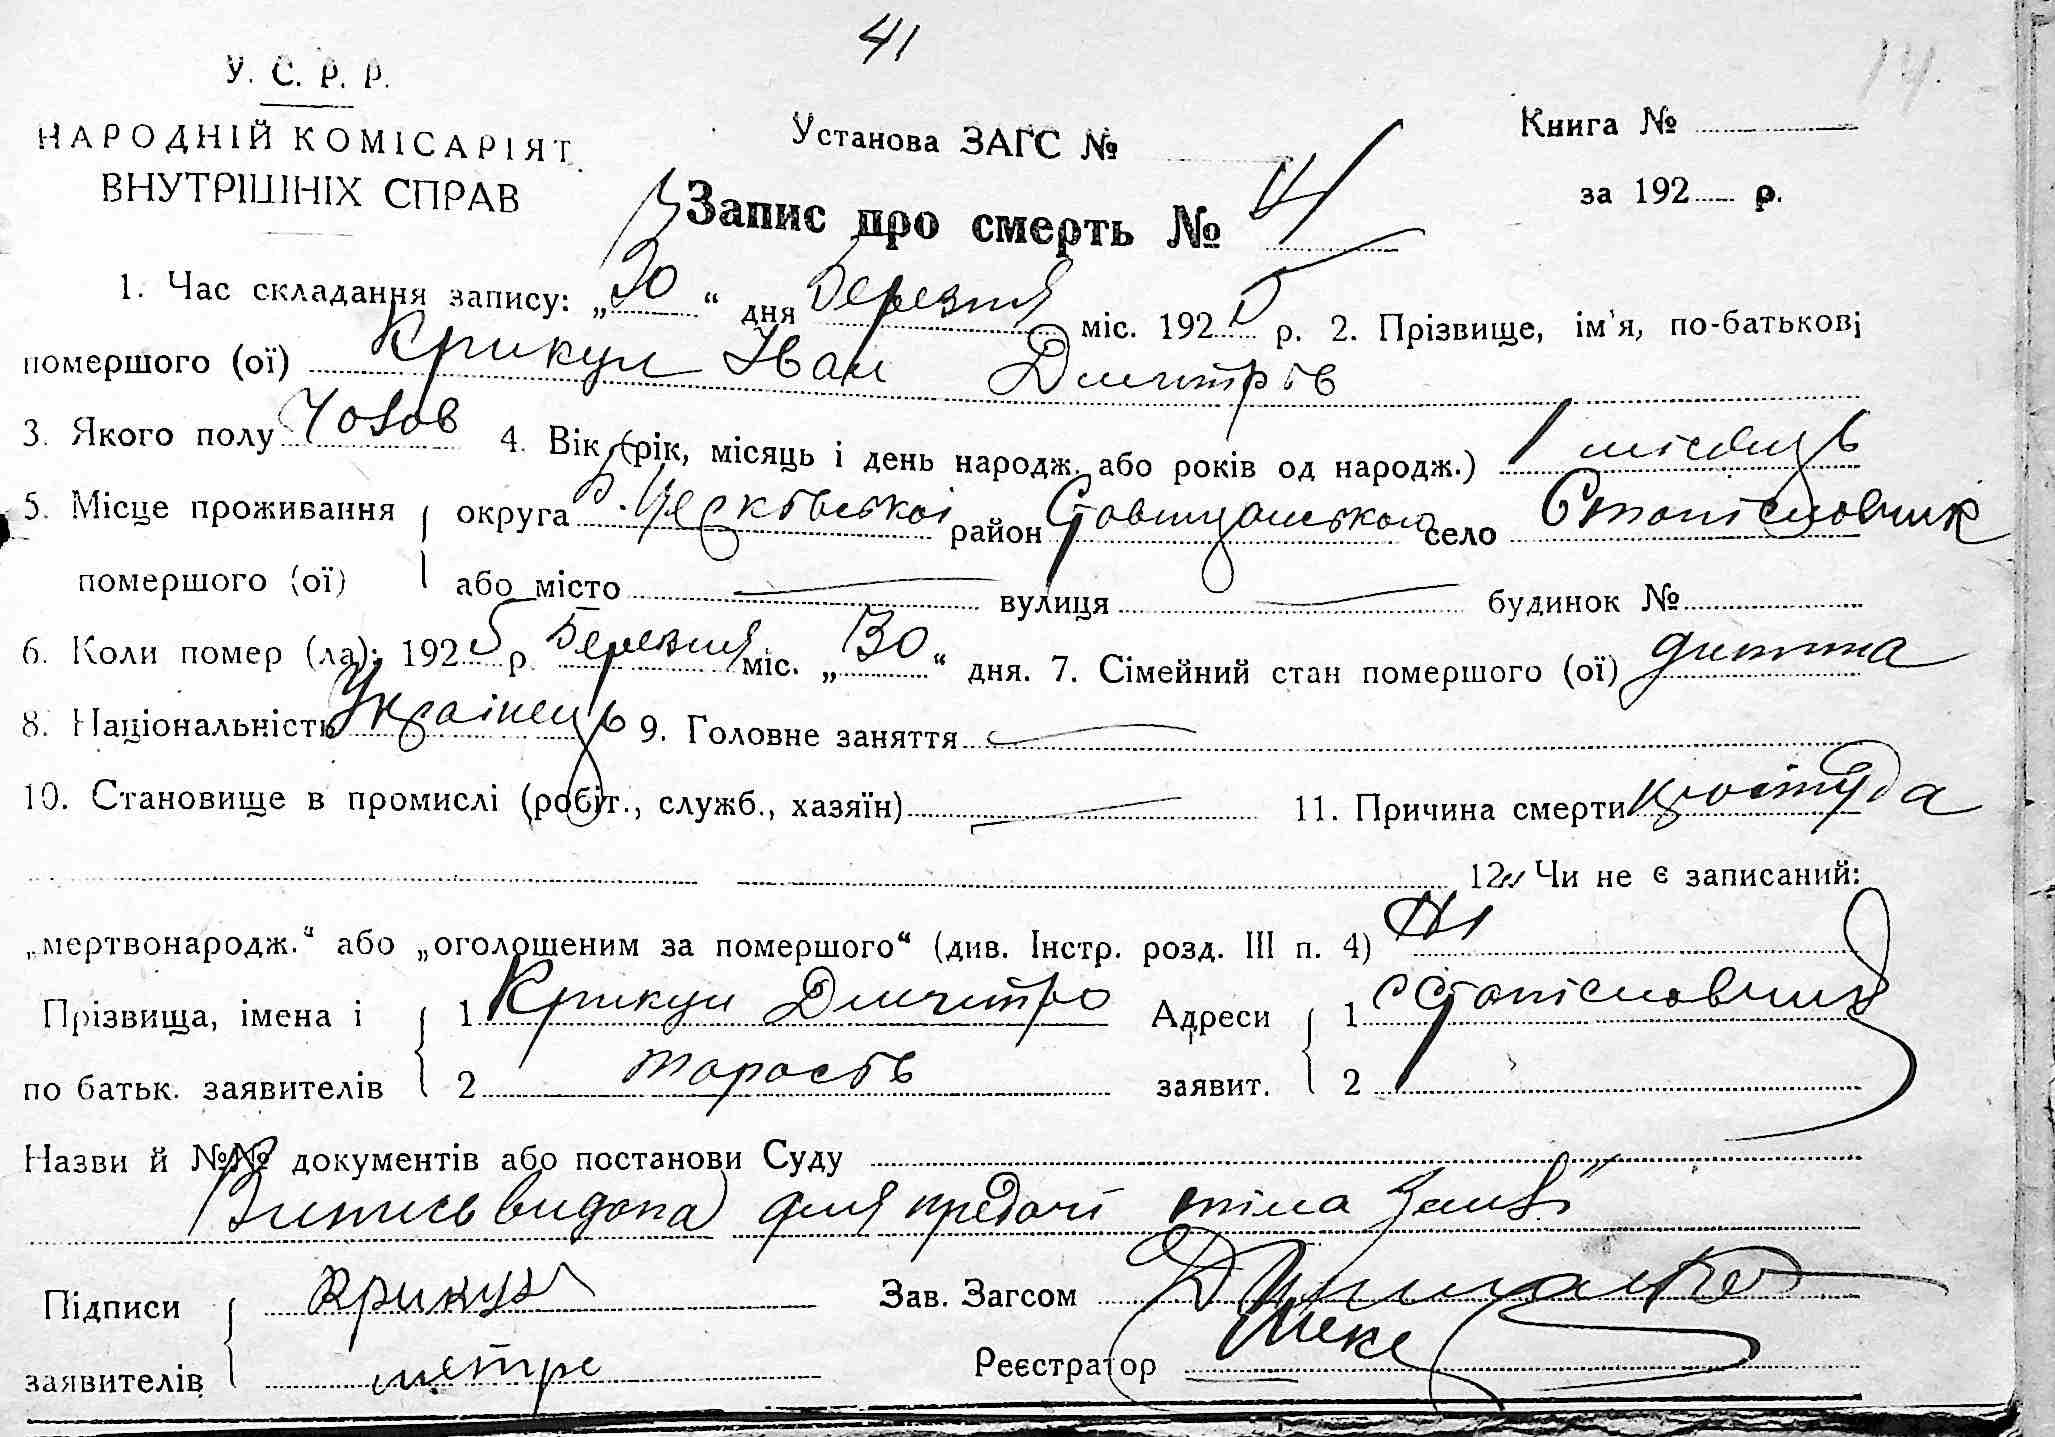 41
14.
У. С. Р. Р.
НАРОДНІЙ КОМІСАРІЯТ
ВНУТРІШНІХ СПРАВ
Установа ЗАГС №
Книга №
за 192 р.
Запис про смерть № 14
1. Час складання запису: „30“ дня Березня міс. 1925 р. 2. Прізвище, ім'я, по-батькові
помершого (ої) Крикун Іван Дмитрів
3. Якого полу Чолов 4. Вік (рік, місяць і день народж. або років од народж.) 1 місяць
5. Місце проживання округа Б. Церквської район Ставищанського село Станіславчик
помершого (ої) або місто — вулиця — будинок №
6. Коли помер (ла): 1925 р. Березня міс. „30“ дня. 7. Сімейний стан помершого (ої) дитина
8. Національність Українець 9. Головне заняття —
10. Становище в промислі (робіт., служб., хазяїн) — 11. Причина смерти простуда
12. Чи не є записаний:
„мертвонародж.“ або „оголошеним за помершого“ (див. Інстр. розд. III п. 4) Ні
Прізвища, імена і 1 Крикун Дмитро Адреси 1 с Станіславчик
по батьк. заявителів 2 Тарасів заявит. 2
Назви й №№ документів або постанови Суду
Випись видана для предачі тіла землі
Підписи Крикун Зав. Загсом
заявителів метре Реєстратор